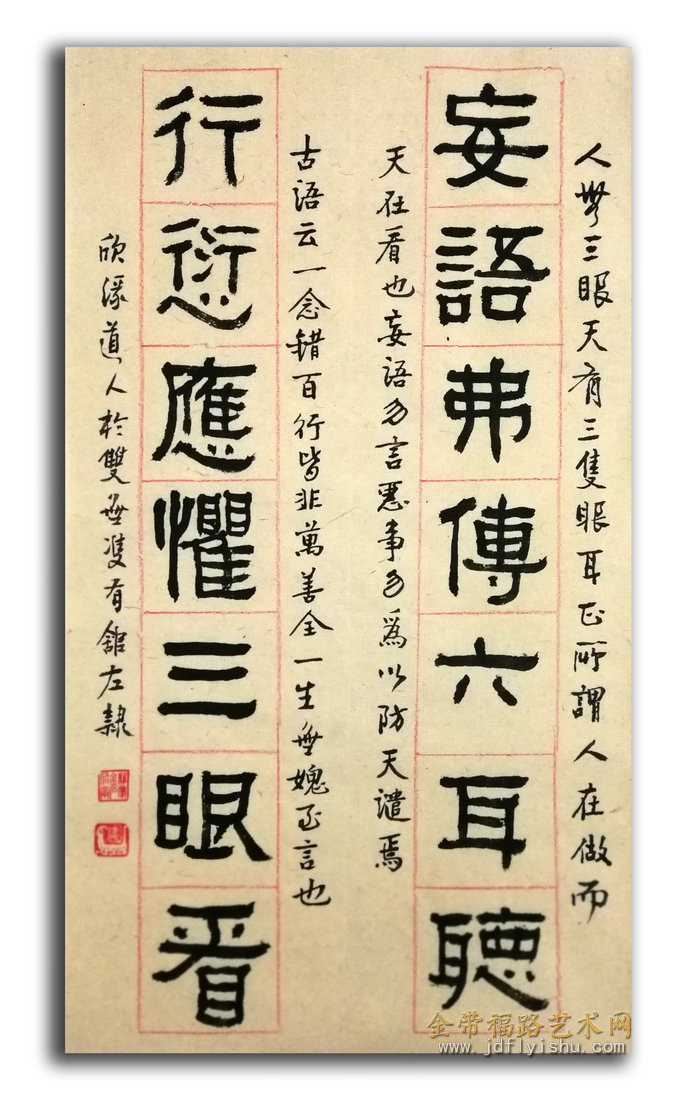 人無三眼天有三隻眼耳正所謂人在做而
妄語弗傳六耳聽
天在看也妄語勿言惡事勿爲以防天譴焉
古語云一念錯百行皆非萬善全一生無媿至言也
行愆應懼三眼看
欣緣道人於雙無雙有舘左隸
金带福路艺术网
www.jdflyishu.com